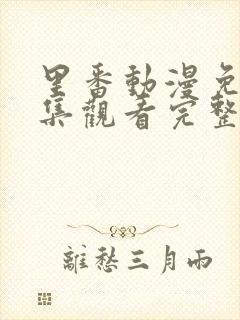 里番動漫免
集觀看完整
離愁三月雨